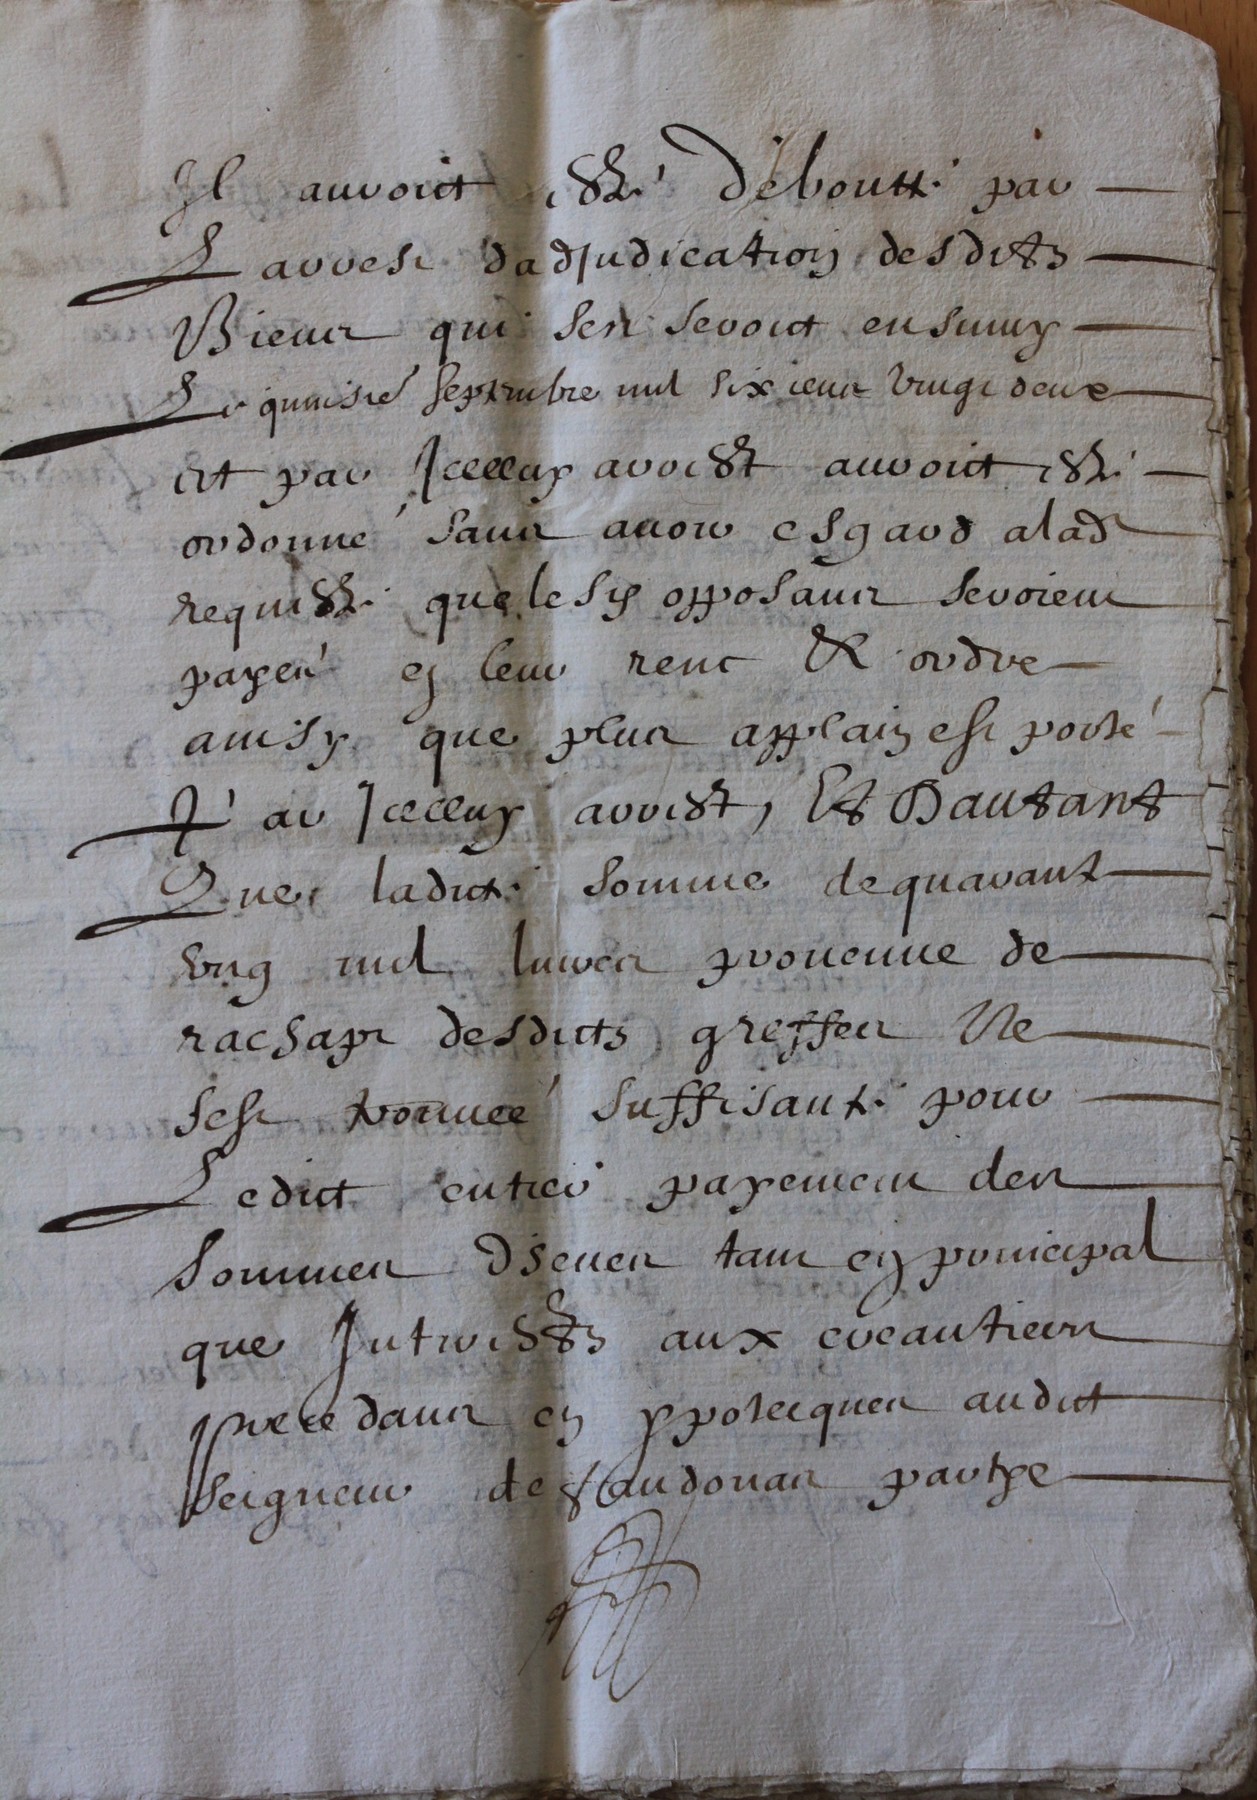 Il auroict esté deboutté par
L'arrest d'adjudication desdits
Biens qui s'en seroict ensuivy
Le quinsie septembre mil six cens vingt deux
et par Icelluy arrest auroict esté
ordonné sans avoir esgard a lad
requeste que lesd opposans seroient
payés en leur renc & ordre
ainsy que plus applain est porté
Par Icelluy arrest, Et Dautant
Que ladicte somme de quarant
ung mil livres provenue de
rachapt desdicts greffes Ne
sest trouvée suffisante pour
Ledict entier payement des
sommes Dheues tant en principal
que Intrestz aux creantiers
precedans en yppotecques audict
seigneur de partye